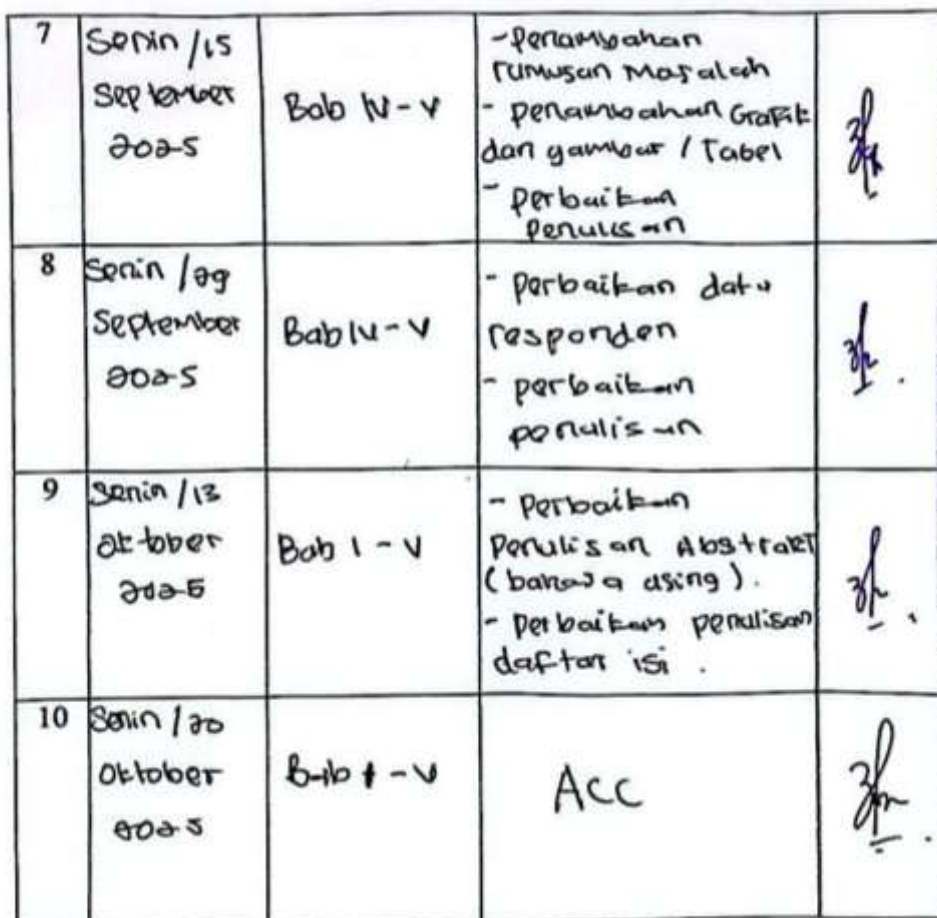 7
Senin /15
September
2025
Bab IV - V
- penambahan
rumusan Masalah
- penambahan Grafik
dan gambar / Tabel
- perbaikan
penulisan
8
Senin /29
September
2025
Bab IV - V
- perbaikan data
responden
- perbaikan
penulisan
9
Senin /13
Oktober
2025
Bab I - V
- Perbaikan
Penulisan Abstrakt
(bahasa asing).
- perbaikan penulisan
daftar isi .
10
Senin /20
Oktober
2025
Bab I - V
ACC